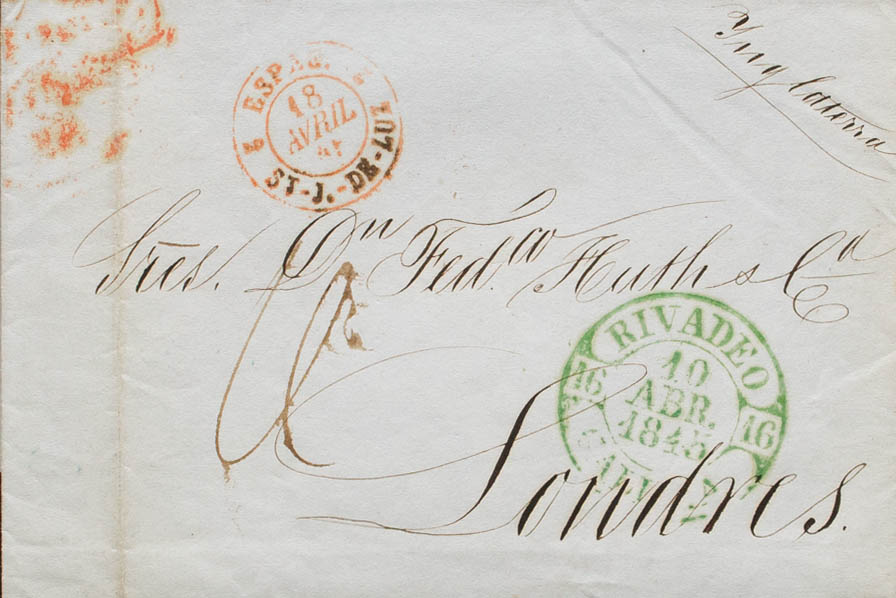 Ynglaterra
2 ESPAG. 2
18
AVRIL
45
ST-J.-DE-LUZ
Sres. Dn Fedco Huth & Ca
RIVADEO
16 10 16
ABR.
1845
Londres.